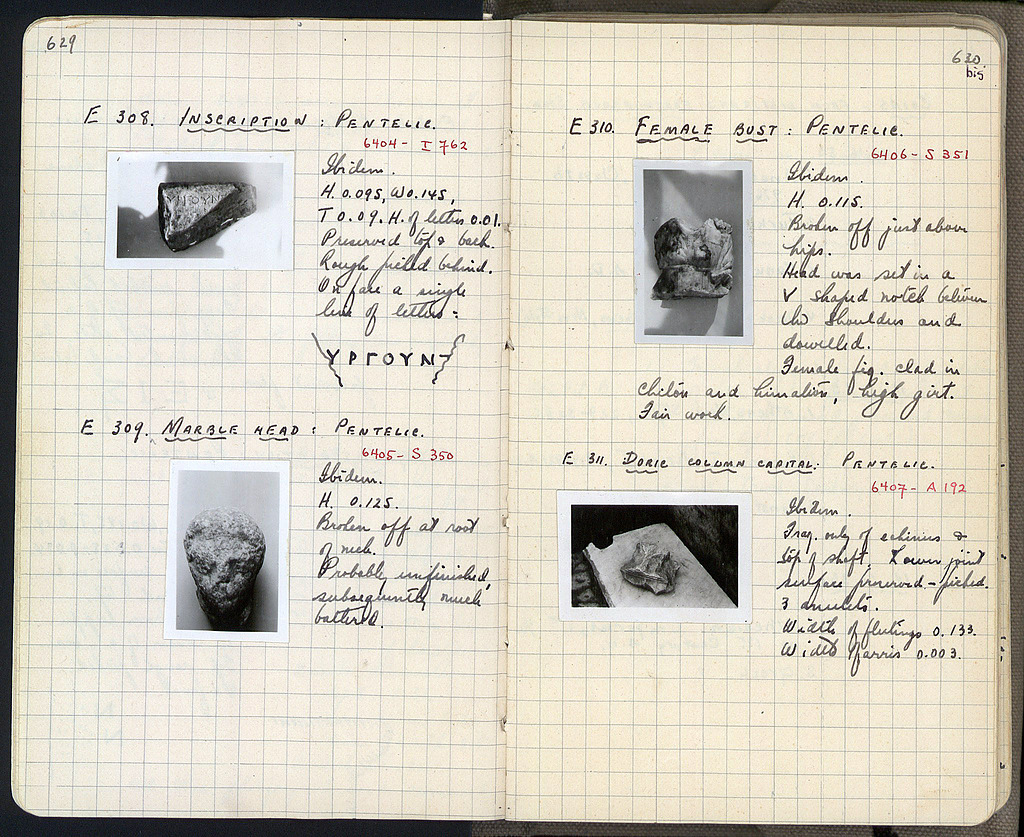 629
E 308. INSCRIPTION : PENTELIC.
6404 - I 762
Ibidem.
H. 0.095, W 0.145,
T 0.09. H. of letters 0.01.
Preserved top & back.
Rough picked behind.
On face a single
line of letters :
ΥΡΓΟΥΝ
E 309. MARBLE HEAD : PENTELIC.
6405 - S 350
Ibidem.
H. 0.125.
Broken off at root
of neck.
Probably unfinished,
subsequently much
battered.
630
bis
E 310. FEMALE BUST : PENTELIC.
6406 - S 351
Ibidem.
H. 0.115.
Broken off just above
hips.
Head was set in a
V shaped notch between
the shoulders and
dowelled.
Female fig. clad in
chiton and himation, high girt.
Fair work.
E 311. DORIC COLUMN CAPITAL: PENTELIC.
6407 - A 192
Ibidem.
Frag. only of echinus &
top of shaft. Lower joint
surface preserved - picked.
3 annulets.
Width of flutings 0.133.
Width of arris 0.003.